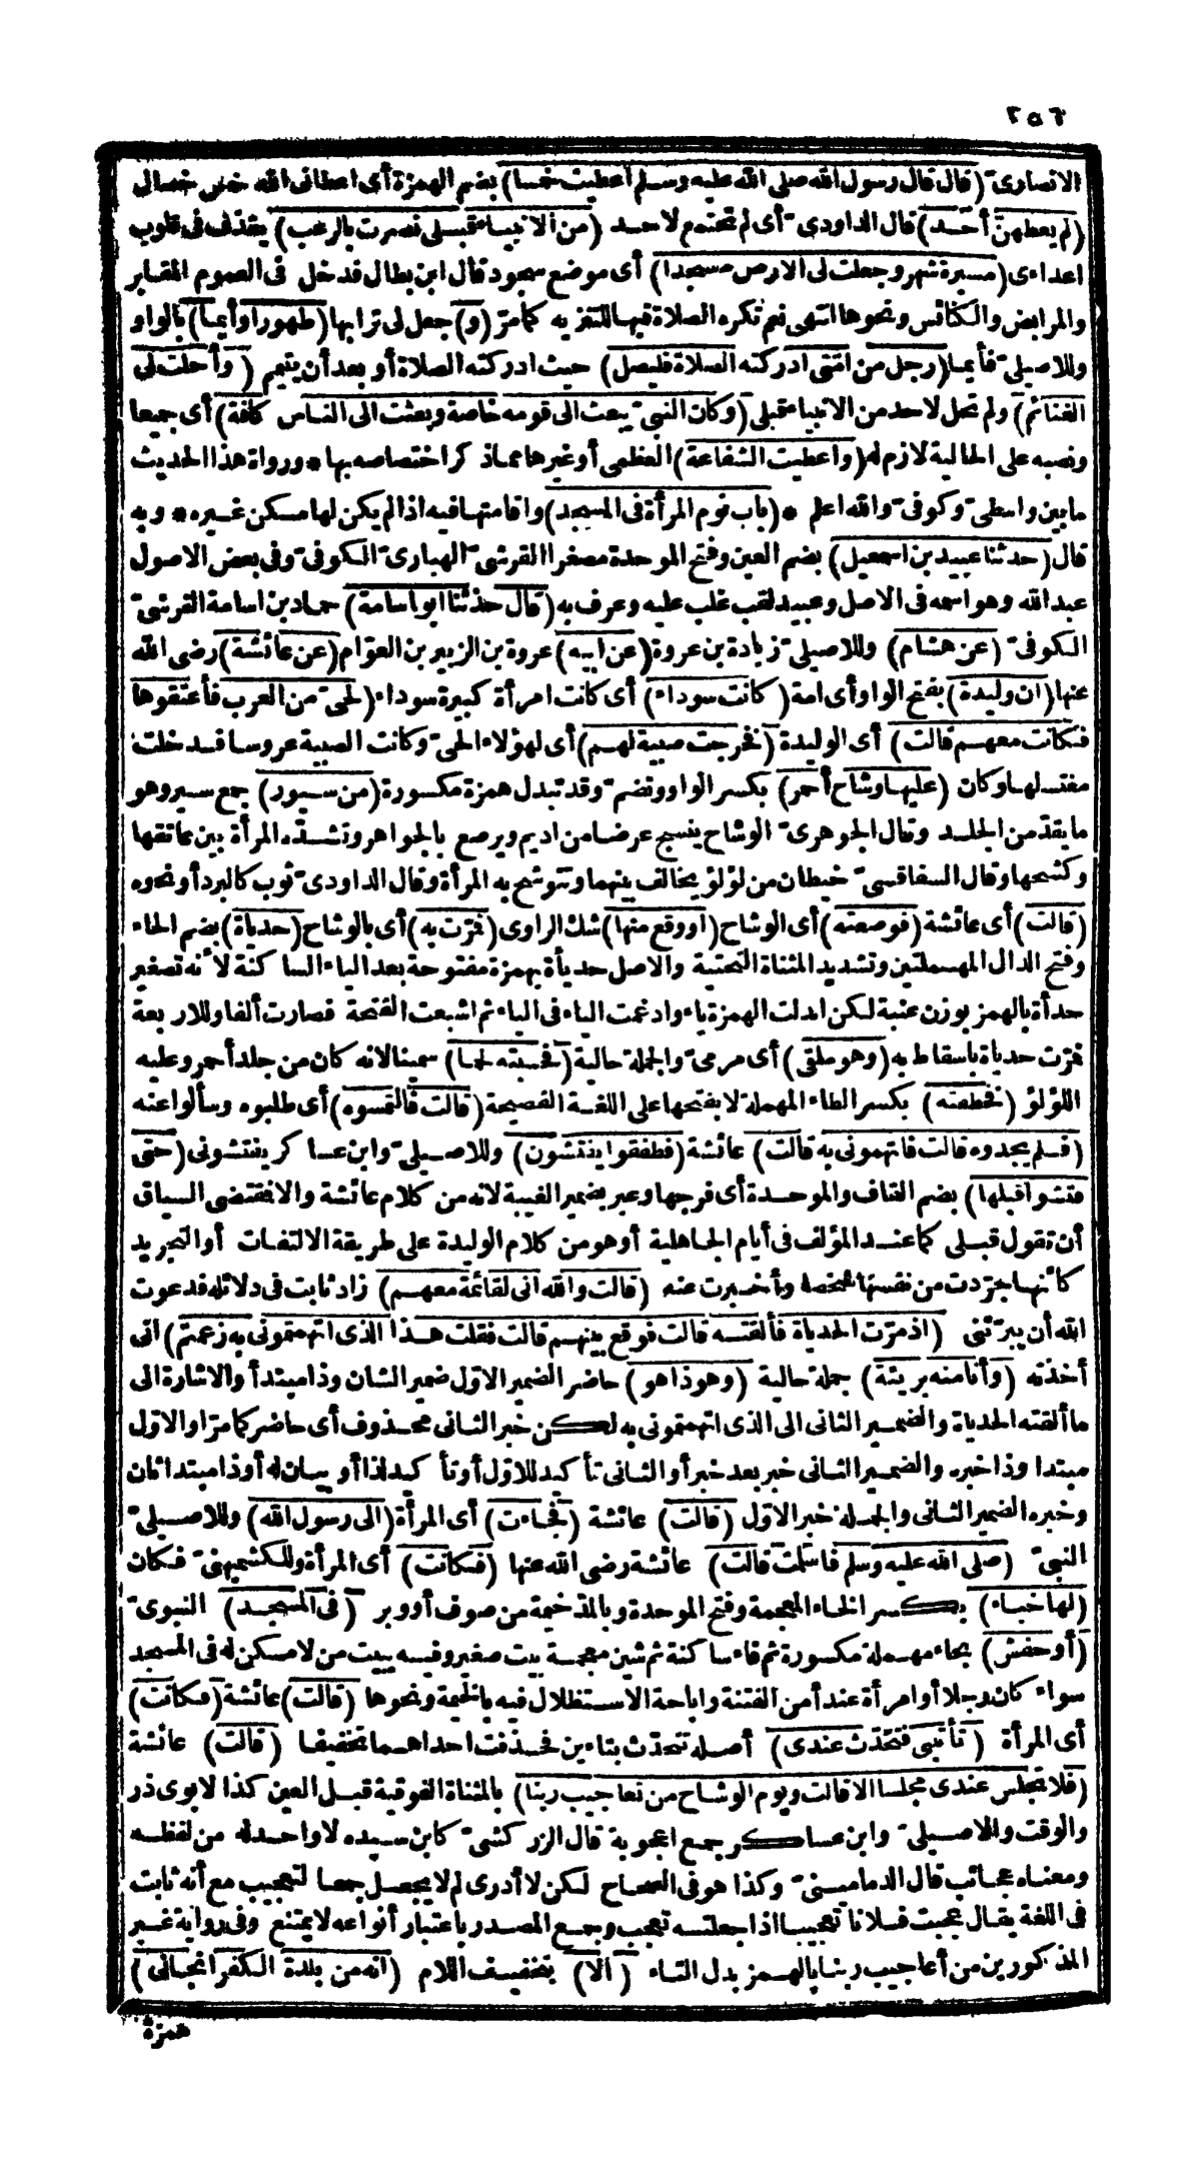 ٢٥٦
الانصارىّ (قال قال رسول الله صلى الله عليه وسلم أعطيت خمسا) بضم الهمزة أى اعطانى الله خمس خصال
(لم يعطهنّ أحد) قال الداودىّ أى لم تجتمع لاحد (من الانبياء قبلى نصرت بالرعب) يقذف فى قلوب
اعداءى (مسيرة شهر وجعلت لى الارض مسجدا) أى موضع سجود قال ابن بطال فدخل فى العموم المقابر
والمرابض والكنائس ونحوها انتهى نعم تكره الصلاة فيها للتنزيه كما مرّ (و) جعل لى ترابها (طهورا وأيما) بالواو
وللاصيلىّ فأيما (رجل من امّتى ادركته الصلاة فليصل) حيث ادركته الصلاة أو بعد أن يتيمم (وأحلت لى
الغنائم) ولم تحل لاحد من الانبياء قبلى (وكان النبىّ يبعث الى قومه خاصة وبعثت الى الناس كافة) أى جميعا
ونصبه على الحالية لازم له (واعطيت الشفاعة) العظمى أو غيرها مما ذكر اختصاصه بها * ورواة هذا الحديث
ما بين واسطىّ وكوفىّ والله اعلم * (باب نوم المرأة فى المسجد) واقامتها فيه اذا لم يكن لها مسكن غيره * وبه
قال (حدثنا عبيد بن اسمعيل) بضم العين وفتح الموحدة مصغرا القرشىّ الهبارىّ الكوفىّ وفى بعض الاصول
عبد الله وهو اسمه فى الاصل وعبيد لقب غلب عليه وعرف به (قال حدّثنا ابو اسامة) حماد بن اسامة القرشىّ
الكوفىّ (عن هشام) وللاصيلىّ زيادة بن عروة (عن ابيه) عروة بن الزبير بن العوّام (عن عائشة) رضى الله
عنها (ان وليدة) بفتح الواو أى امة (كانت سوداء) أى كانت امرأة كبيرة سوداء (لحىّ من العرب فأعتقوها
فكانت معهم قالت) أى الوليدة (فخرجت صبية لهم) أى لهؤلاء الحىّ وكانت الصبية عروسا فدخلت
مغتسلها وكان (عليها وشاح أحمر) بكسر الواو وتضم وقد تبدل همزة مكسورة (من سيور) جمع سير وهو
ما يقدّ من الجلد وقال الجوهرىّ الوشاح ينسج عرضا من اديم ويرصع بالجواهر وتشدّه المرأة بين عاتقها
وكشحها وقال السفاقسىّ خيطان من لؤلؤ يخالف بينهما وتتوشح به المرأة وقال الداودىّ ثوب كالبرد أو نحوه
(قالت) أى عائشة (فوضعته) أى الوشاح (أو وقع منها) شك الراوى (فمرّت به) أى بالوشاح (حدياة) بضم الحاء
وفتح الدال المهملتين وتشديد المثناة التحتية والاصل حديأة بهمزة مفتوحة بعد الياء الساكنة لأنه تصغير
حدأة بالهمز بوزن عنبة لكن ابدلت الهمزة ياء وادغمت الياء فى الياء ثم اشبعت الفتحة فصارت ألفا وللاربعة
فمرّت حدياة باسقاط به (وهو ملقى) أى مرمىّ والجملة حالية (فحسبته لحما) سمينا لانه كان من جلد أحمر وعليه
اللؤلؤ (فخطفته) بكسر الطاء المهملة لا بفتحها على اللغة الفصيحة (قالت فالتمسوه) أى طلبوه وسألوا عنه
(فلم يجدوه قالت فاتهمونى به قالت) عائشة (فطفقوا يفتشون) وللاصيلىّ وابن عساكر يفتشونى (حتى
فتشوا قبلها) بضم القاف والموحدة أى فرجها وعبر بضمير الغيبة لانه من كلام عائشة والا فمقتضى السياق
أن تقول قبلى كما عند المؤلف فى أيام الجاهلية أو هو من كلام الوليدة على طريقة الالتفات أو التجريد
كأنها جرّدت من نفسها شخصا وأخبرت عنه (قالت والله انى لقائمة معهم) زاد ثابت فى دلائله فدعوت
الله أن يبرّئنى (اذ مرّت الحدياة فألقته قالت فوقع بينهم قالت فقلت هذا الذى اتهمتمونى به زعمتم) انى
أخذته (وأنا منه بريئة) جملة حالية (وهو ذا هو) حاضر الضمير الاوّل ضمير الشان وذا مبتدأ والاشارة الى
ما ألقته الحدياة والضمير الثانى الى الذى اتهمتمونى به لكن خبر الثانى محذوف أى حاضر كما مرّ أو الاوّل
مبتدا وذا خبره والضمير الثانى خبر بعد خبر أو الثانى تأكيد للاوّل أو تأكيد لذا أو بيان له أو ذا مبتدا ثان
وخبره الضمير الثانى والجملة خبر الاوّل (قالت) عائشة (فجاءت) أى المرأة (الى رسول الله) وللاصيلىّ
النبىّ (صلى الله عليه وسلم فاسلمت قالت) عائشة رضى الله عنها (فكانت) أى المرأة وللكشميهنىّ فكان
(لها خباء) بكسر الخاء المعجمة وفتح الموحدة وبالمدّ خيمة من صوف أو وبر (فى المسجد) النبوىّ
(أو حفش) بحاء مهملة مكسورة ثم فاء ساكنة ثم شين معجمة بيت صغير وفيه بيت من لا مسكن له فى المسجد
سواء كان رجلا أو امرأة عند أمن الفتنة واباحة الاستظلال فيه بالخيمة ونحوها (قالت) عائشة (فكانت)
أى المرأة (تأتينى فتحدّث عندى) أصله تتحدّث بتاءين فحذفت احداهما تخفيفا (قالت) عائشة
(فلا تجلس عندى مجلسا الا قالت ويوم الوشاح من تعاجيب ربنا) بالمثناة الفوقية قبل العين كذا لابوى ذر
والوقت والاصيلىّ وابن عساكر جمع اعجوبة قال الزركشىّ كابن سيده لا واحد له من لفظه
ومعناه عجائب قال الدمامينىّ وكذا هو فى الصحاح لكن لا أدرى لم لا يجعل جمعا لتعجيب مع أنه ثابت
فى اللغة يقال عجبت فلانا تعجيبا اذا جعلته تعجب وجمع المصدر باعتبار أنواعه لا يمتنع وفى رواية غير
المذكورين من أعاجيب ربنا بالهمز بدل التاء (ألا) بتخفيف اللام (انه من بلدة الكفر انجانى)
همزة